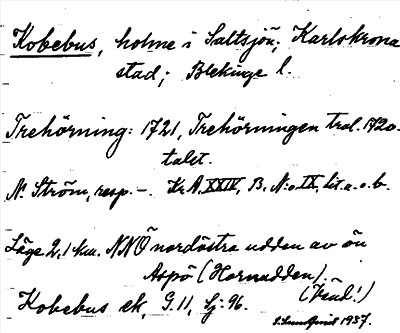 Kobebus, holme i Saltsjön; Karlskrona
stad; Blekinge l.
Trehörning: 1721, Trehörningen trol. 1720-
talet.
N. Ström, resp. –. Kr.A. XXIV, B. N:o IX, lit. a. o. b.
Läge 2,1 km. NNO nordöstra udden av ön
Aspö (Hornudden).
Kobebus ek, G. 11, Sj: 96. (Vänd!)
1937.